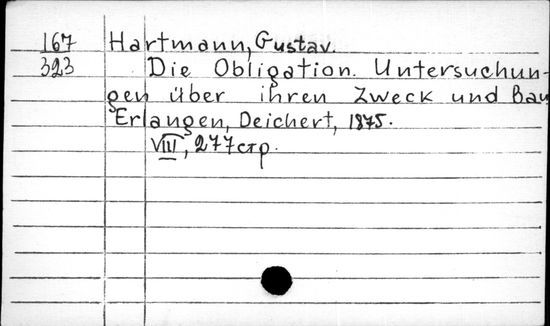 167 Hartmann, Gustav.
323 Die Obligation. Untersuchun-
gen über ihren Zweck und Bau
Erlangen, Deichert, 1875.
VIII, 277 стр.